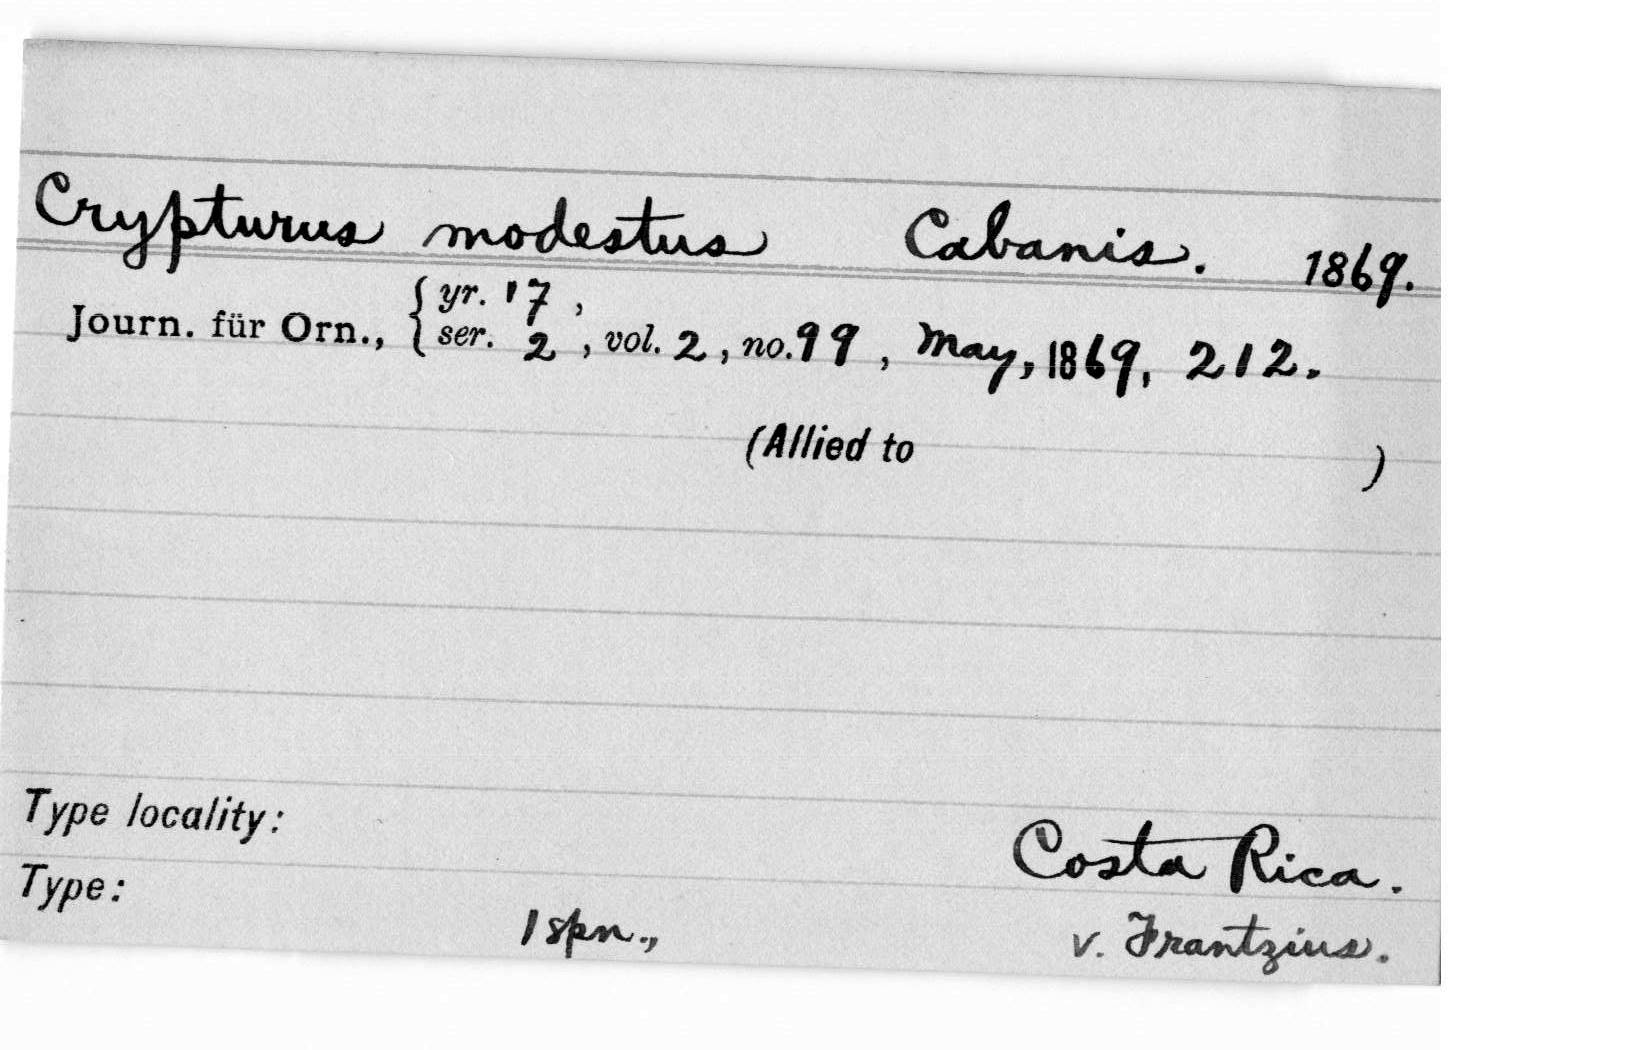 Crypturus modestus Cabanis. 1869.
Journ. für Orn., { yr. 17 ,
ser. 2 , vol. 2 , no. 99 , May, 1869, 212.
(Allied to )
Type locality:
Costa Rica.
Type:
1 spn., v. Frantzius.